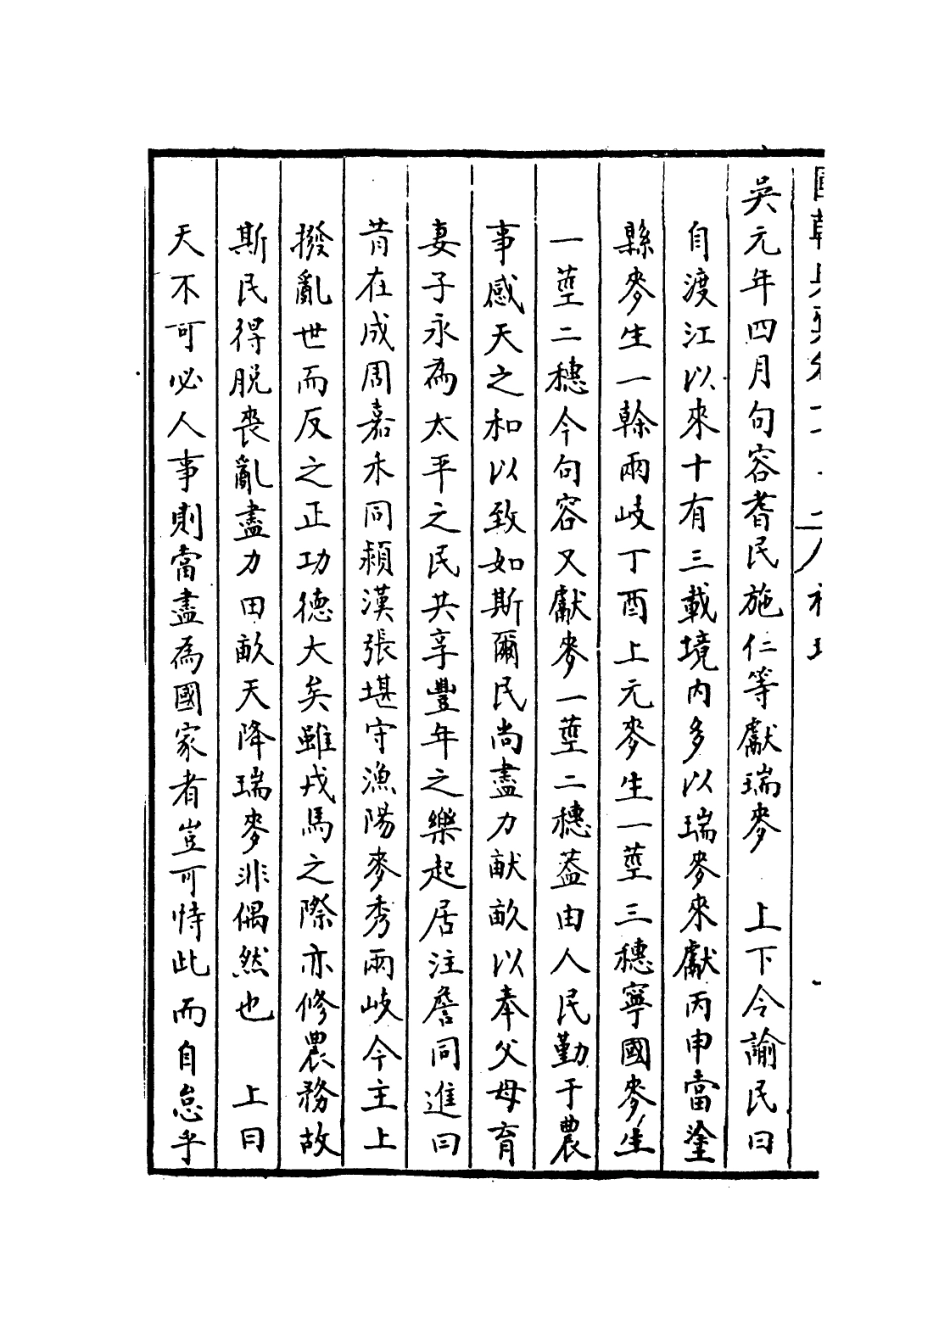 吳元年四月句容耆民施仁等獻瑞麥　上下令諭民曰
自渡江以來十有三載境內多以瑞麥來獻丙申當塗
縣麥生一榦兩岐丁酉上元麥生一莖三穗寧國麥生
一莖二穗今句容又獻麥一莖二穗葢由人民勤于農
事感天之和以致如斯爾民尚盡力畎畝以奉父母育
妻子永為太平之民共享豐年之樂起居注詹同進曰
昔在成周嘉禾同穎漢張堪守漁陽麥秀兩岐今主上
撥亂世而反之正功德大矣雖戎馬之際亦修農務故
斯民得脱喪亂盡力田畝天降瑞麥非偶然也　上曰
天不可必人事則當盡為國家者豈可恃此而自怠乎